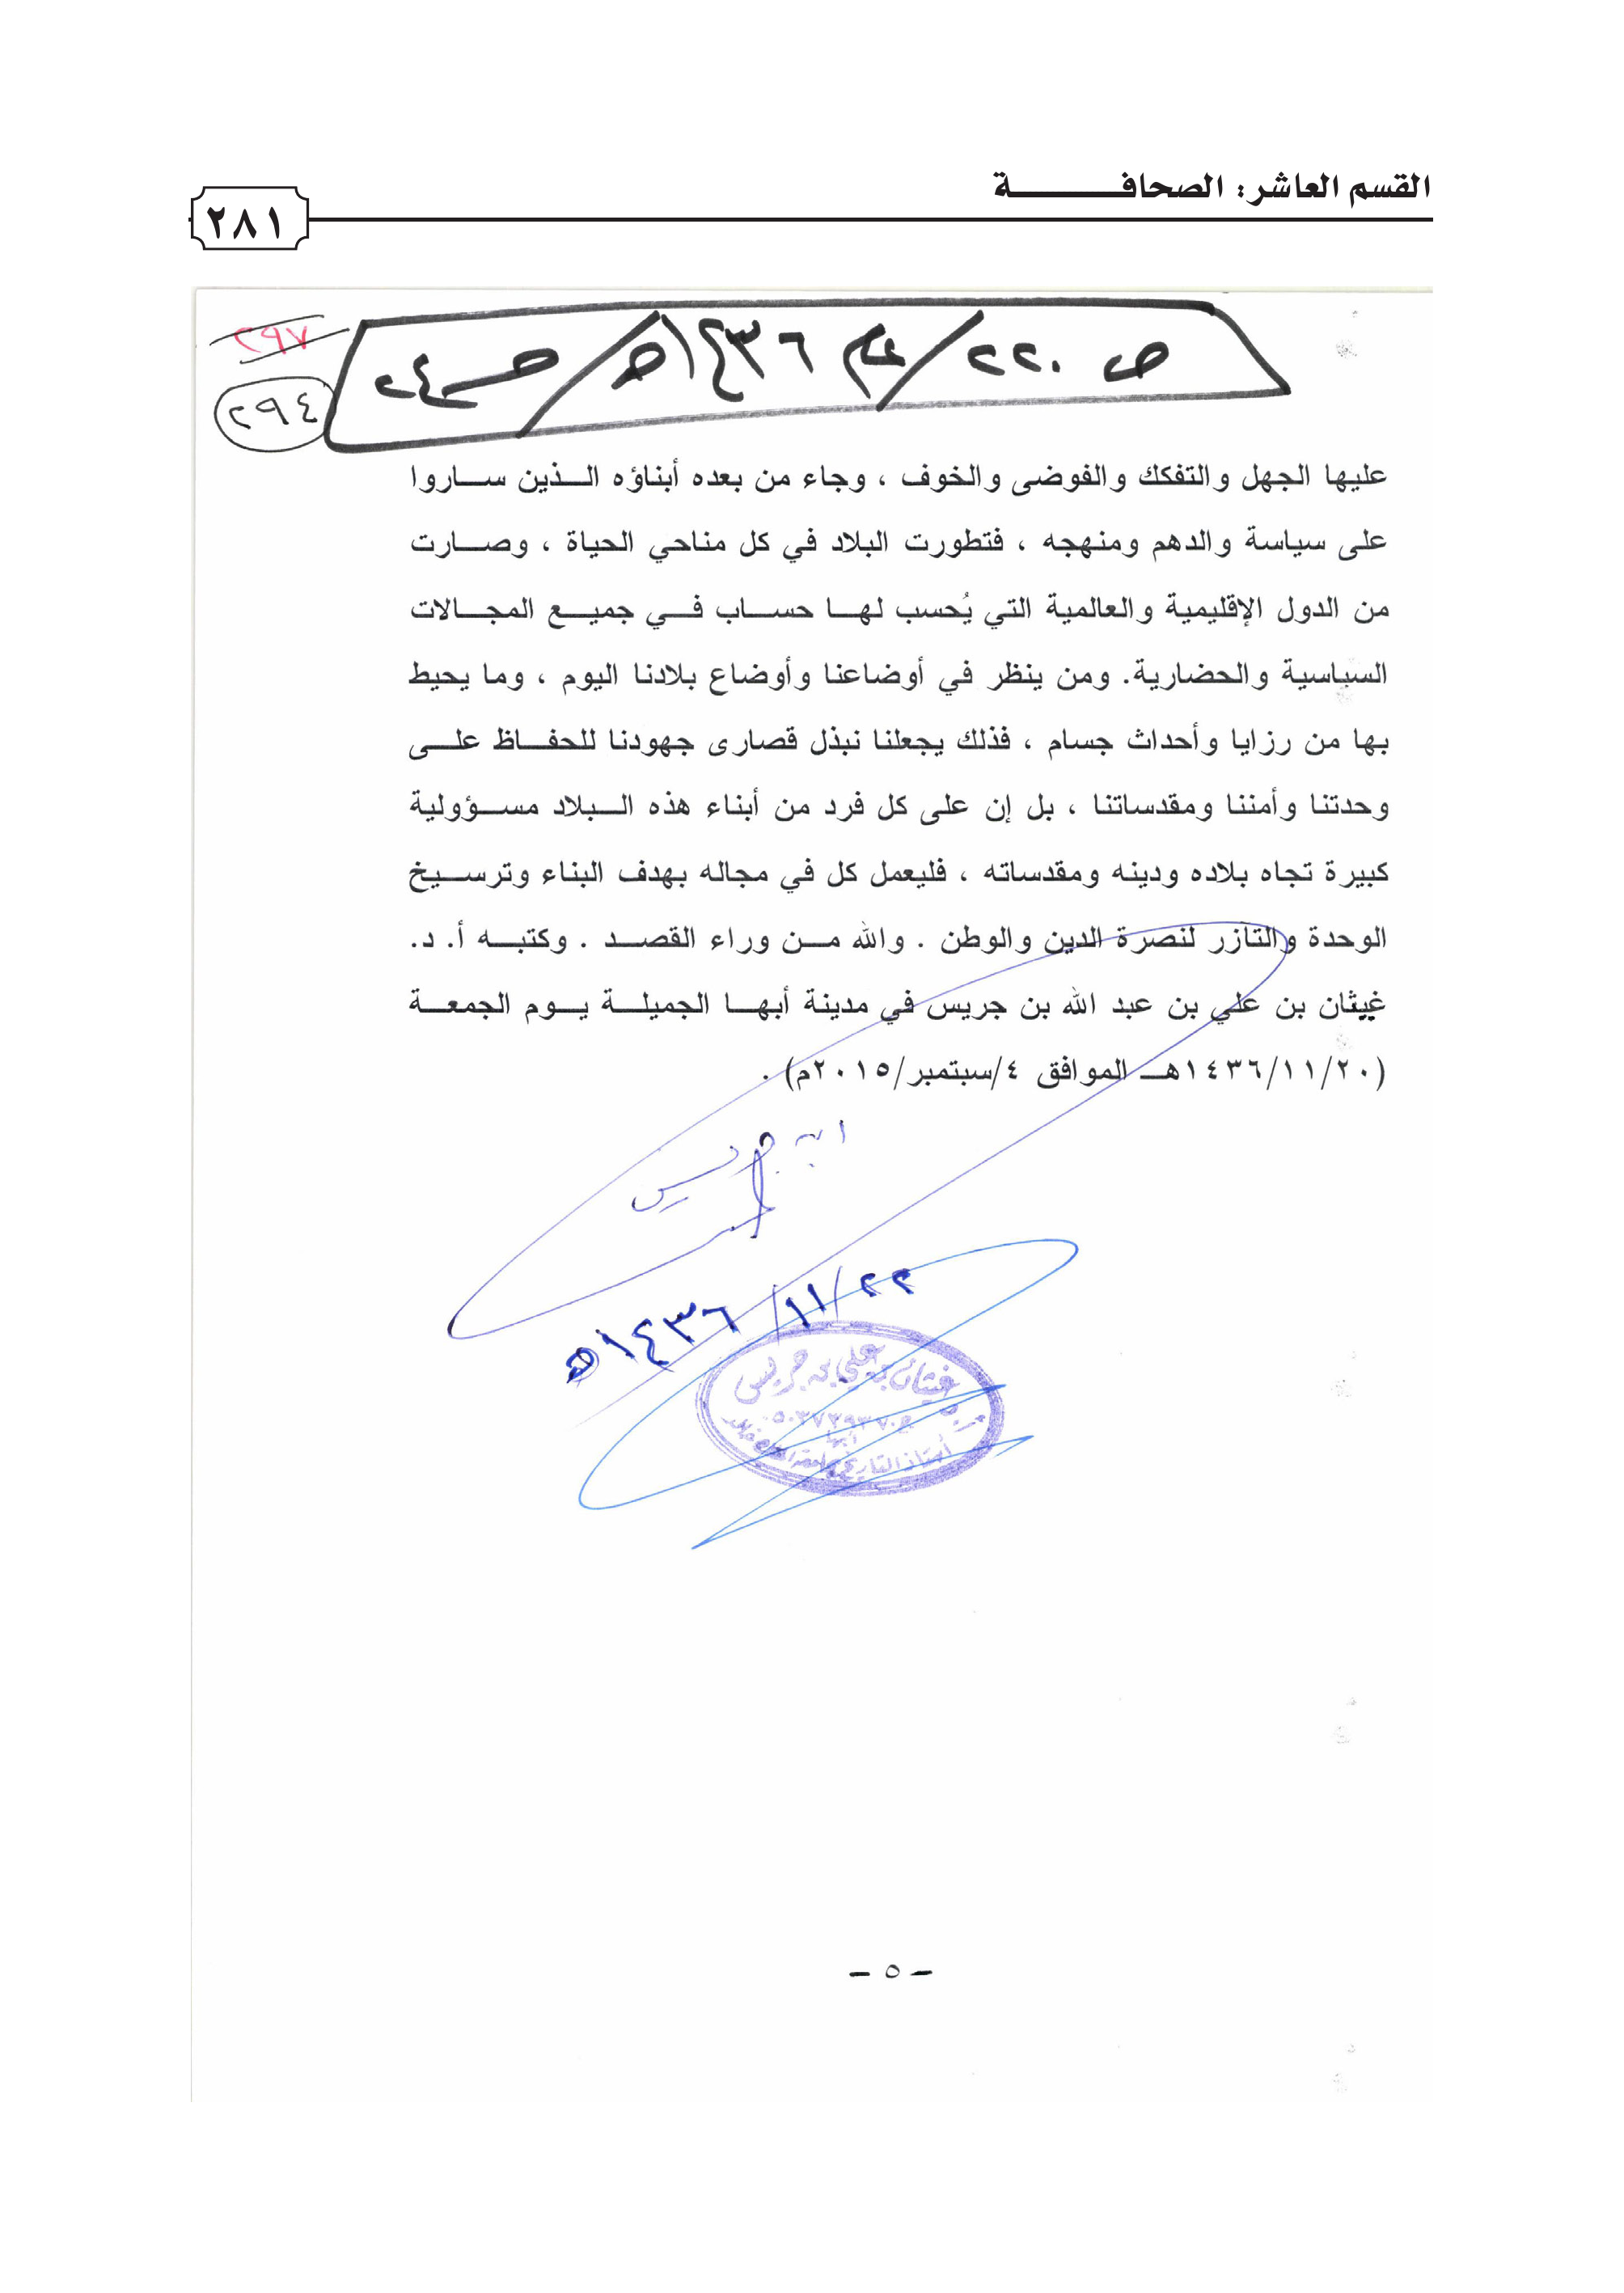 القسم العاشر: الصحافة
٢٨١
٢٩٧
ص ٢٢٠ / عام ١٤٣٦هـ /
٢٩٤
عليها الجهل والتفكك والفوضى والخوف ، وجاء من بعده أبناؤه الذين ساروا
على سياسة والدهم ومنهجه ، فتطورت البلاد في كل مناحي الحياة ، وصارت
من الدول الإقليمية والعالمية التي يُحسب لها حساب في جميع المجالات
السياسية والحضارية. ومن ينظر في أوضاعنا وأوضاع بلادنا اليوم ، وما يحيط
بها من رزايا وأحداث جسام ، فذلك يجعلنا نبذل قصارى جهودنا للحفاظ على
وحدتنا وأمننا ومقدساتنا ، بل إن على كل فرد من أبناء هذه البلاد مسؤولية
كبيرة تجاه بلاده ودينه ومقدساته ، فليعمل كل في مجاله بهدف البناء وترسيخ
الوحدة والتآزر لنصرة الدين والوطن . والله من وراء القصد . وكتبه أ. د.
غيثان بن علي بن عبد الله بن جريس في مدينة أبها الجميلة يوم الجمعة
(١٤٣٦/١١/٢٠هـ الموافق ٤/سبتمبر/٢٠١٥م) .
ابن جريس
٢٢/١١/١٤٣٦هـ
غيثان بن علي بن جريس
أبها
أستاذ التاريخ
- ٥ -